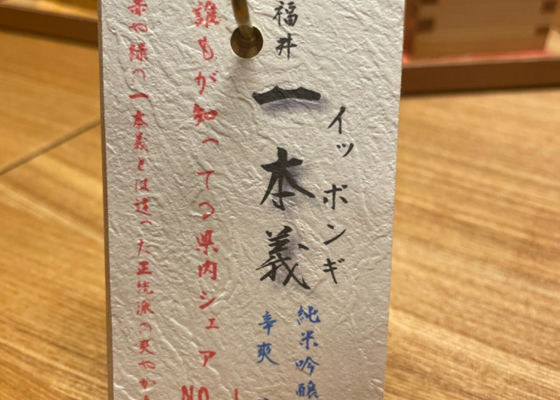 イッポンギ
福井
一本義
純米吟醸
辛爽
誰もが知ってる県内シェアNO.1
緑の一本義とは違った正統派の爽やか